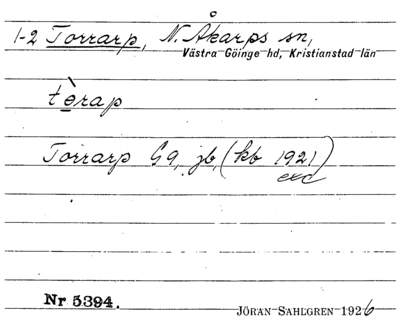 1-2 Torrarp, N. Åkarps sn,
Västra Göinge hd, Kristianstad län
tèrap
Torrarp Gg, jb, (kb 1921)
exc
Nr 5394.
JÖRAN SAHLGREN 1926